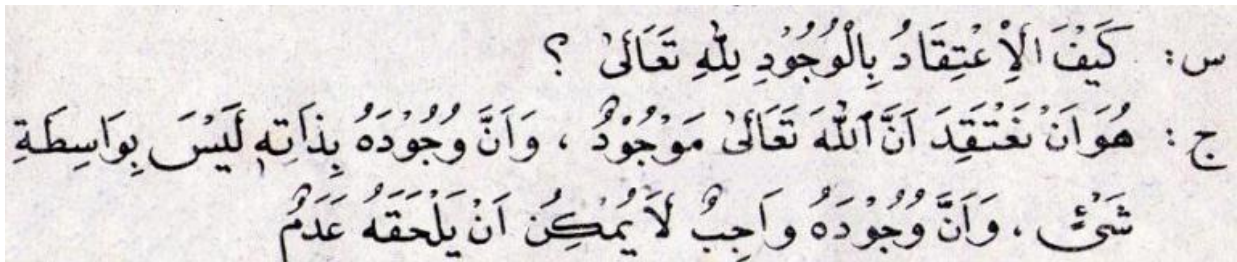 س: كَيْفَ الْاِعْتِقَادُ بِالْوُجُوْدِ لِلّٰهِ تَعَالٰى ؟
ج: هُوَ اَنْ نَعْتَقِدَ اَنَّ اللّٰهَ تَعَالٰى مَوْجُوْدٌ ، وَاَنَّ وُجُوْدَهُ بِذَاتِهٖ لَيْسَ بِوَاسِطَةِ
شَىْءٍ ، وَاَنَّ وُجُوْدَهُ وَاجِبٌ لَا يُمْكِنُ اَنْ يَلْحَقَهُ عَدَمٌ